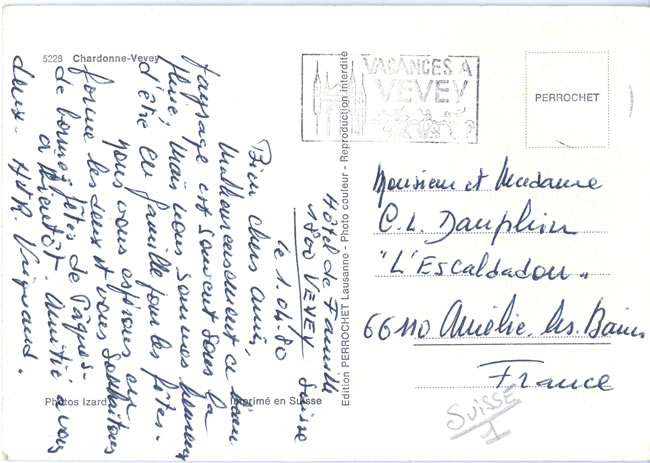 5228 Chardonne-Vevey
VACANCES A
VEVEY
PERROCHET
Hôtel de Famille
1800 VEVEY Suisse
le 1.04.80
Bien chers amis,
Malheureusement ce beau
paysage est souvent sous la
pluie, mais nous sommes heureux
d'être en famille pour les fêtes.
Nous vous espérons en
forme les deux et vous souhaitons
de bonnes fêtes de Pâques.
à bientôt. Amitié à vous
deux.
Monsieur et Madame
C.L. Dauphin
"L'Escaldadou"
66110 Amélie.les.Bains
France
SUISSE
1
Edition PERROCHET Lausanne - Photo couleur - Reproduction interdite
Photos Izard
Imprimé en Suisse